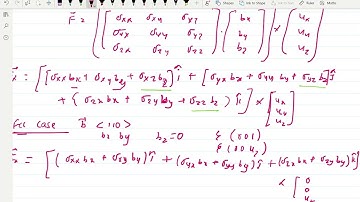 F = ( ( σxx σxy σxz
σyx σyy σyz
σzx σzy σzz ) · ( bx
by
bz ) ) × ( ux
uy
uz )
= [ [ σxx bx + σxy by + σxz bz ] î + [ σyx bx + σyy by + σyz bz ] ĵ
+ { σzx bx + σzy by + σzz bz } k̂ ] × [ ux
uy
uz ]
case b <110>
bx by bz=0 ξ (001)
ξ (00 uz)
= [ ( σxx bx + σxy by ) î + ( σyx bx + σyy by ) ĵ + ( σzx bx + σzy by ) k̂ ]
× [ 0
0
uz